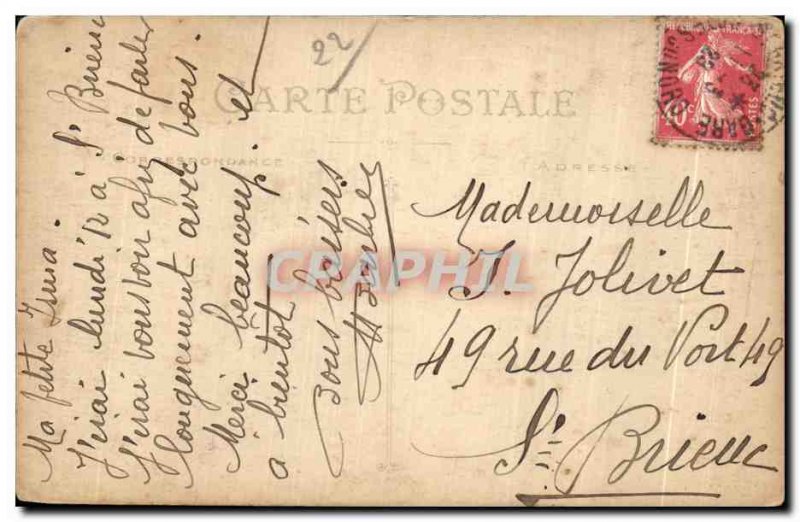 22
CARTE POSTALE
CORRESPONDANCE
ADRESSE
Ma petite
J'irai lundi 12 à St Brieuc
J'irai vous voir afin de parler
longuement avec vous.
Merci beaucoup et
à bientôt
bons baisers
Mademoiselle
J. Jolivet
49 rue du Port 49
St Brieuc
CRAPHIL
GARE